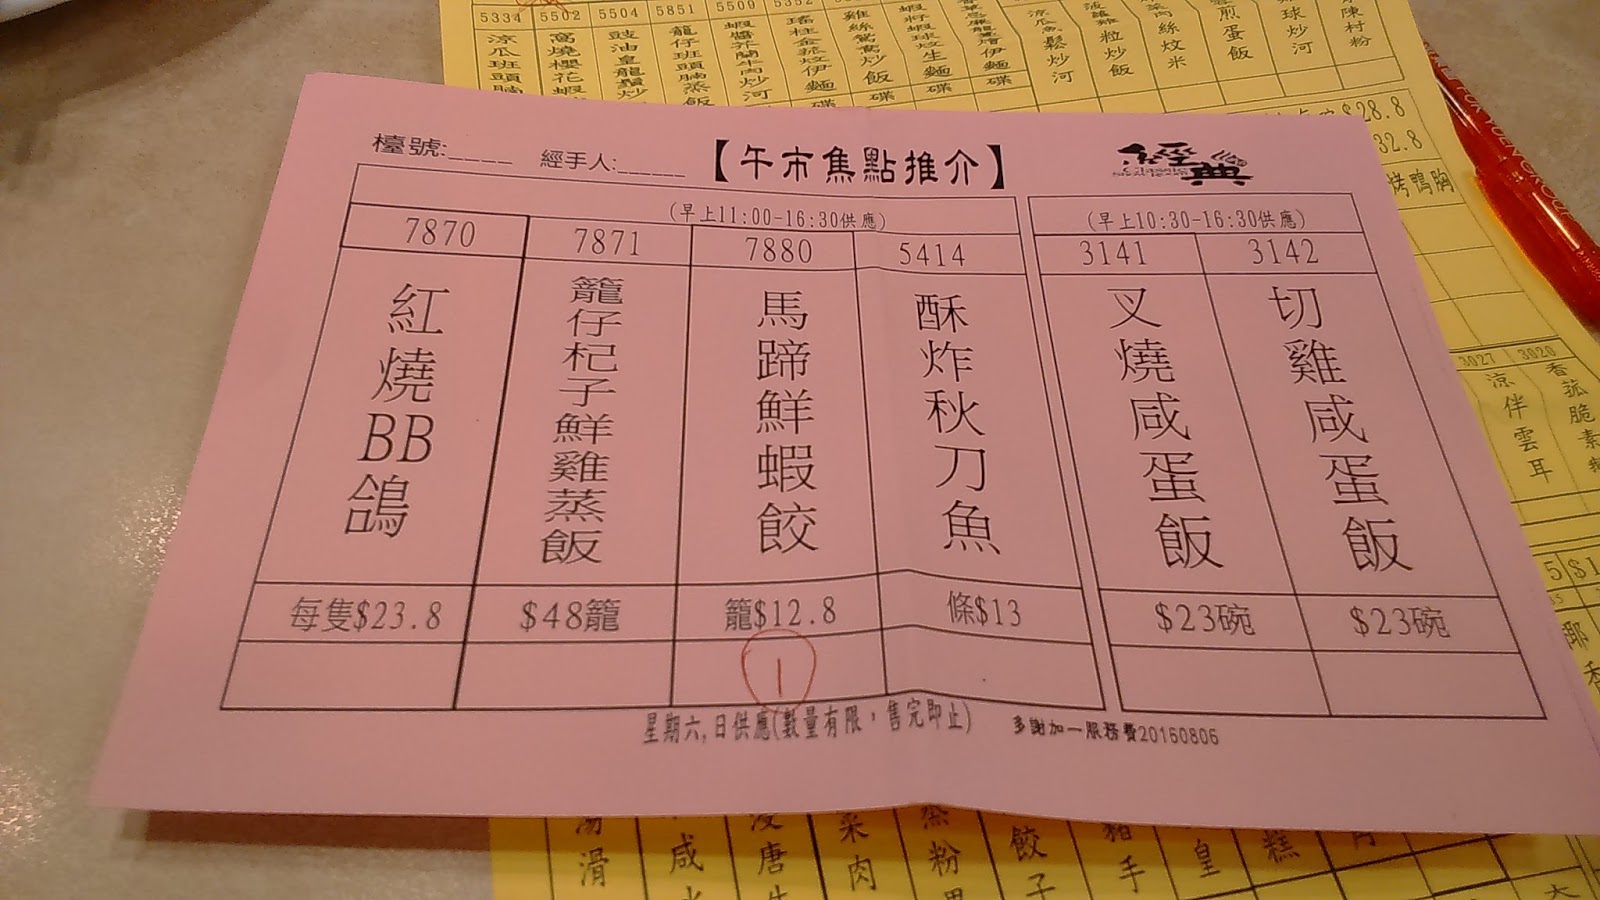 5334 5502 5504 5851 5509
涼瓜班頭腩
窩燒櫻花蝦
豉油皇龍鬚炒
籠仔班頭腩蒸飯
蝦醬芥蘭牛肉炒河
瑤柱金菇炆伊麵
碟
碟
碟
粒炒飯
絲炆米
煎蛋飯
球炒河
陳村粉
$28.8
32.8
烤鴨胸
檯號:____ 經手人:______ 【午市焦點推介】 經典
(早上11:00-16:30供應) (早上10:30-16:30供應)
7870 7871 7880 5414 3141 3142
紅燒BB鴿
籠仔杞子鮮雞蒸飯
馬蹄鮮蝦餃
酥炸秋刀魚
叉燒咸蛋飯
切雞咸蛋飯
每隻$23.8 $48籠 籠$12.8 條$13 $23碗 $23碗
1
星期六,日供應(數量有限，售完即止) 多謝加一服務費20160806
3027 3020
涼伴雲耳
香菰脆素
5 $1
耶
香
湯滑
咸
浸唐
菜肉
蒸粉
餃子
豬手
皇
糕